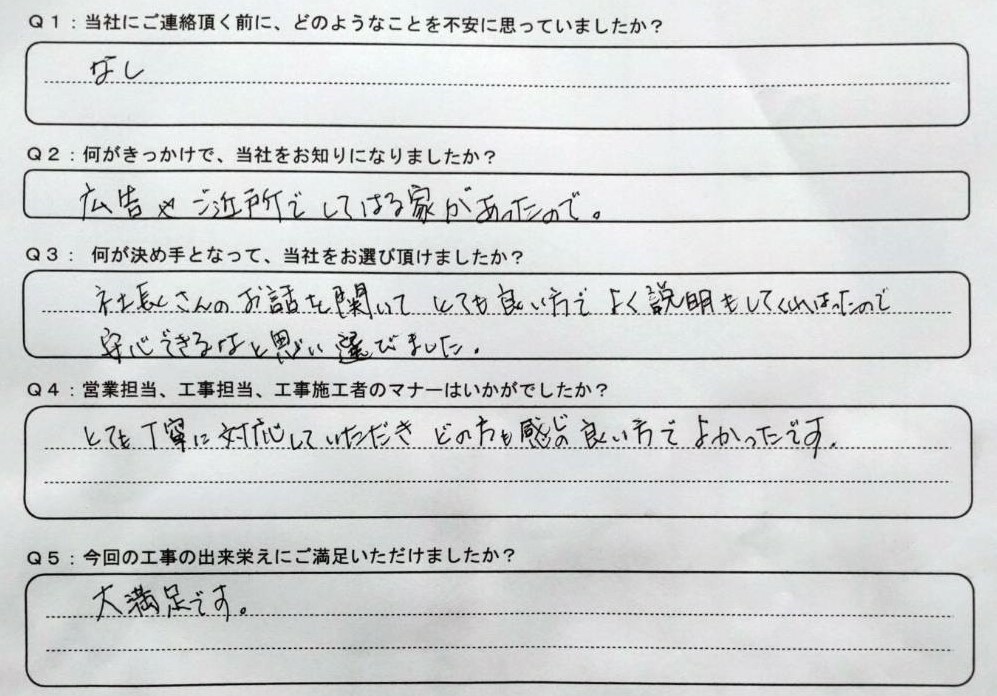 Q1:当社にご連絡頂く前に、どのようなことを不安に思っていましたか?
なし
Q2:何がきっかけで、当社をお知りになりましたか?
広告やご近所でしてはる家があったので。
Q3: 何が決め手となって、当社をお選び頂けましたか?
社長さんのお話を聞いてとても良い方でよく説明もしてくれはったので
安心できるなと思い選びました。
Q4:営業担当、工事担当、工事施工者のマナーはいかがでしたか?
とても丁寧に対応していただきどの方も感じの良い方でよかったです。
Q5:今回の工事の出来栄えにご満足いただけましたか?
大満足です。